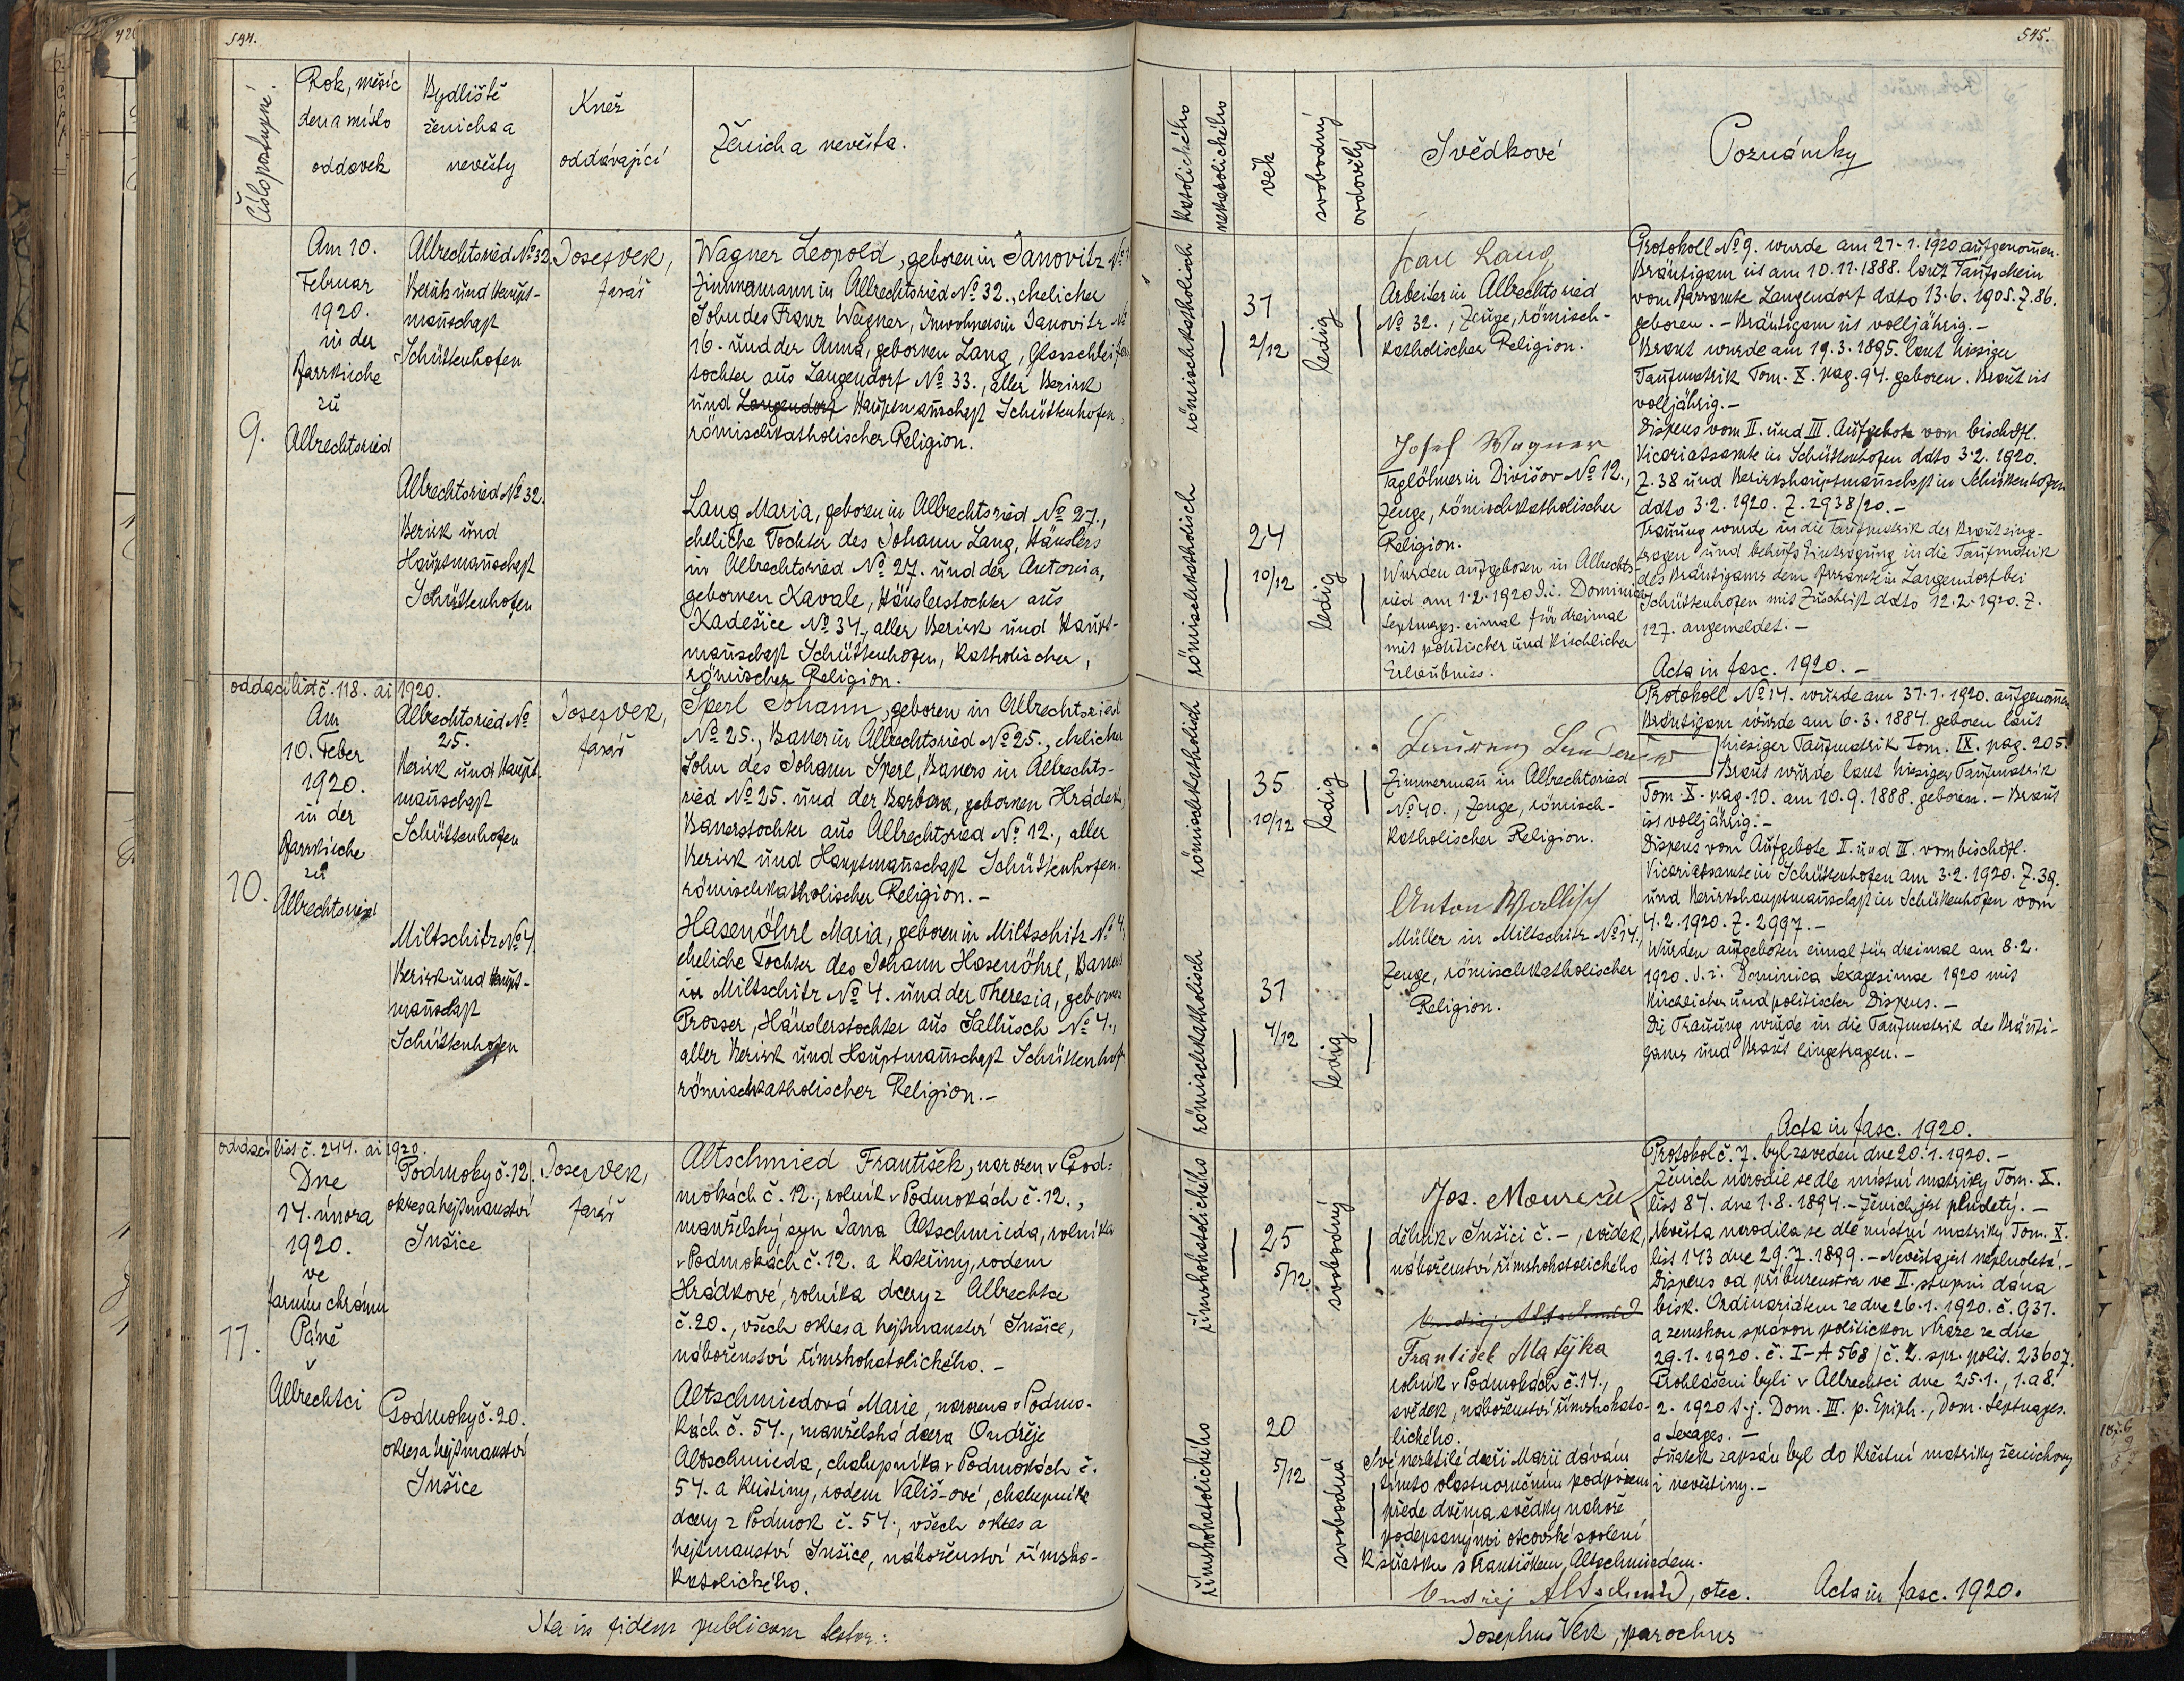 544.
Číslo postupné.
Rok, měsíc
den a místo
oddavek
Bydliště
ženicha a
nevěsty
Kněz
oddávající
Ženich a nevěsta.
9.
Am 10.
Februar
1920.
in der
Pfarrkirche
zu
Albrechtsried
Albrechtsried No 32.
Bezirk und Haupt-
mannschaft
Schüttenhofen
Albrechtsried No 32.
Bezirk und
Hauptmannschaft
Schüttenhofen
Josef Vek,
farář
Wagner Leopold, geboren in Janovitz No
Zimmermann in Albrechtsried No 32., ehelicher
Sohn des Franz Wagner, Inwohners in Janovitz No
16. und der Anna, gebornen Lang, Glasschleifers
tochter aus Langendorf No 33., aller Bezirk
und Langendorf Hauptmannschaft Schüttenhofen,
römischkatholischer Religion.
Lang Maria, geboren in Albrechtsried No 27.,
eheliche Tochter des Johann Lang, Häuslers
in Albrechtsried No 27. und der Antonia,
gebornen Kavale, Häuslerstochter aus
Kadešice No 34., aller Bezirk und Haupt-
mannschaft Schüttenhofen, katholischer,
römischer Religion.
oddací list č. 118. ai 1920.
10.
Am
10. Feber
1920.
in der
Pfarrkirche
zu
Albrechtsried
Albrechtsried No
25.
Bezirk und Haupt-
mannschaft
Schüttenhofen
Miltschitz No 4.
Bezirk und Haupt-
mannschaft
Schüttenhofen
Josef Vek,
farář
Sperl Johann, geboren in Albrechtsried
No 25., Bauer in Albrechtsried No 25., ehelicher
Sohn des Johann Sperl, Bauers in Albrechts-
ried No 25. und der Barbara, gebornen Hrádek,
Bauerstochter aus Albrechtsried No 12., aller
Bezirk und Hauptmannschaft Schüttenhofen.
römischkatholischer Religion.-
Hasenöhrl Maria, geboren in Miltschitz No 4.,
eheliche Tochter des Johann Hasenöhrl, Bauers
in Miltschitz No 4. und der Theresia, gebornen
Prosser, Häuslerstochter aus Jallusch No 4.,
aller Bezirk und Hauptmannschaft Schüttenhof
römischkatholischer Religion.-
oddací list č. 244. ai 1920.
11.
Dne
14. února
1920.
ve
farním chrámu
Páně
v
Albrechtci
Podmoky č. 12.
okres a hejtmanství
Sušice
Podmoky č. 20.
okres a hejtmanství
Sušice
Josef Vek,
farář
Altschmied František, narozen v Pod-
mokách č. 12., rolník v Podmokách č. 12.,
manželský syn Jana Altschmieda, rolníka
v Podmokách č. 12. a Kateřiny, rodem
Hrádkové, rolníka dcery z Albrechtce
č. 20., všech okres a hejtmanství Sušice,
náboženství římskokatolického.-
Altschmiedová Marie, narozena v Podmo-
kách č. 54., manželská dcera Ondřeje
Altschmieda, chalupníka v Podmokách č.
54. a Kristiny, rodem Vališ-ové, chalupníka
dcery z Podmok č. 54., všech okres a
hejtmanství Sušice, náboženství římsko-
katolického.
Ita in fidem publicam testor:
545.
katolického
nekatolického
věk
svobodný
ovdovělý
Svědkové
Poznámky
römischkatholisch
31
2/12
ledig
Lang
Arbeiter in Albrechtsried
No 32., Zeuge, römisch-
katholischer Religion.
römischkatholisch
24
10/12
ledig
Josef Wagner
Taglöhner in Divišov No 12.,
Zeuge, römischkatholischer
Religion.
Wurden aufgeboten in Albrechts-
ried am 1.2.1920 d.i. Dominica
Septuages. einmal für dreimal
mit politischer und kirchlicher
Erlaubniss.
Protokoll No 9. wurde am 21.1.1920 aufgenommen.
Bräutigam ist am 10.11.1888. laut Taufschein
vom Pfarramte Langendorf ddto 13.6.1905. Z. 86.
geboren.- Bräutigam ist volljährig.-
Braut wurde am 19.3.1895. laut hiesiger
Taufmatrik Tom. X. pag. 94. geboren. Braut ist
volljährig.-
Dispens vom II. und III. Aufgebote vom bischöfl.
Vicariatsamte in Schüttenhofen ddto 3.2.1920.
Z. 38 und Bezirkshauptmannschaft in Schüttenhofen
ddto 3.2.1920. Z. 2938/20.-
Trauung wurde in die Taufmatrik der Braut einge-
tragen und behufs Eintragung in die Taufmatrik
des Bräutigams dem Pfarramte in Langendorf bei
Schüttenhofen mit Zuschrift ddto 12.2.1920. Z.
127. angemeldet.-
Acta in fasc. 1920.-
römischkatholisch
35
10/12
ledig
Zimmermann in Albrechtsried
No 40., Zeuge, römisch-
katholischer Religion.
römischkatholisch
31
4/12
ledig
Anton Wallisch
Müller in Miltschitz No 14.,
Zeuge, römischkatholischer
Religion.
Protokoll No 14. wurde am 31.1.1920. aufgenommen
Bräutigam wurde am 6.3.1884. geboren laut
hiesiger Taufmatrik Tom. IX. pag. 205.
Braut wurde laut hiesiger Taufmatrik
Tom. X. pag. 10. am 10.9.1888. geboren.- Braut
ist volljährig.-
Dispens vom Aufgebote II. und III. vom bischöfl.
Vicariatsamte in Schüttenhofen am 3.2.1920. Z. 39.
und Bezirkshauptmannschaft in Schüttenhofen vom
4.2.1920. Z. 2997.-
Wurden aufgeboten einmal für dreimal am 8.2.
1920. d.i. Dominica Sexagesimae 1920 mit
kirchlicher und politischer Dispens.-
Die Trauung wurde in die Taufmatrik des Bräuti-
gams und Braut eingetragen.-
Acta in fasc. 1920.
římskokatolického
25
5/12
svobodný
Jos. Mourečk
dělník v Sušici č. -, svědek,
náboženství římskokatolického
František Matějka
rolník v Podmokách č. 14.,
svědek, náboženství římskokato-
lického.
římskokatolického
20
5/12
svobodná
Své nezletilé dceři Marii dávám
tímto vlastnoručním podpisem
přede dvěma svědky nahoře
podepsanými otcovské svolení
k sňatku s Františkem Altschmiedem.
Ondřej Altschmid, otec.
Protokol č. 7. byl zaveden dne 20.1.1920.-
Ženich narodil se dle místní matriky Tom. X.
list 84. dne 1.8.1894.- Ženich jest plnoletý.-
Nevěsta narodila se dle místní matriky Tom. X.
list 143 dne 29.7.1899.- Nevěsta jest neplnoletá.-
Dispens od příbuzenstva ve II. stupni dána
bisk. Ordinariátem ze dne 26.1.1920. č. 931.
a zemskou správou politickou v Praze ze dne
29.1.1920. č. I-A 568/č. z. spr. polit. 23607.
Prohlášeni byli v Albrechtci dne 25.1., 1. a 8.
2. 1920 t.j. Dom. III. p. Epiph., Dom. Septuages.
a Sexages.-
Sňatek zapsán byl do křestní matriky ženichovy
i nevěstiny.-
Acta in fasc. 1920.
Josephus Vek, parochus